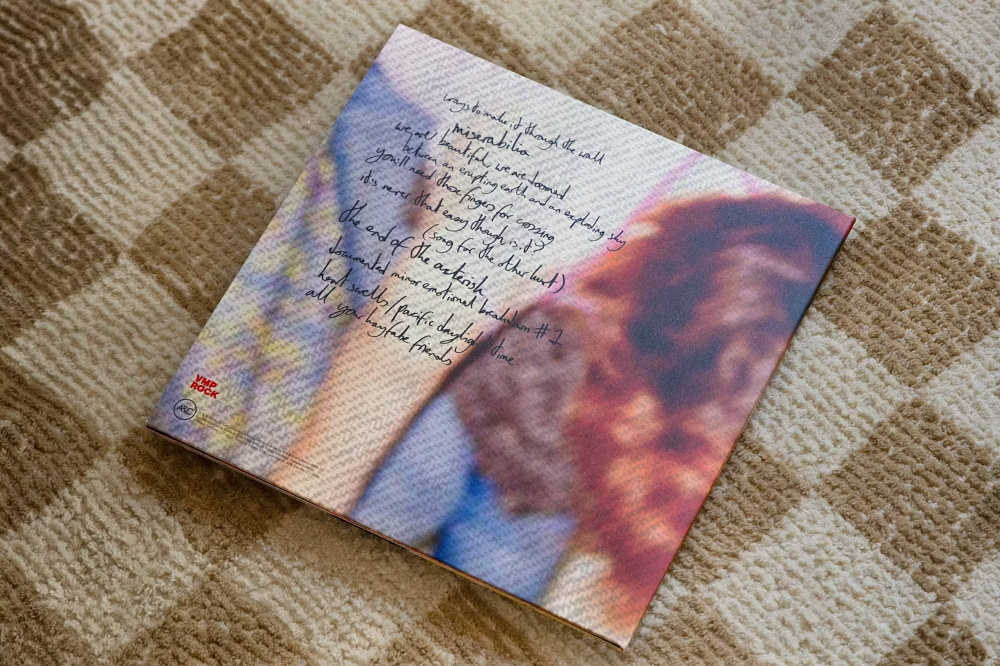 ways to make it through the wall
miserabilia
we are beautiful, we are doomed
between an erupting earth and an exploding sky
you'll need those fingers for crossing
it's never that easy though, is it?
(song for the other kurt)
the end of the asterisk
documented minor emotional breakdown #1
heart swells/pacific daylight time
all your kayfabe friends
VMP
ROCK